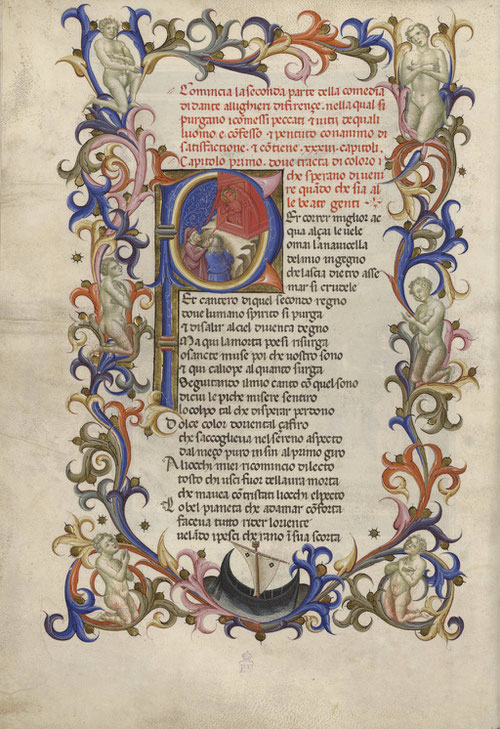 Comincia la seconda parte della comedia
di dante allighieri di firenze. nella qual si
purgano i comessi peccati et uitij de quali
luomo e cofesso et pentuto con animo di
satisfactione. et cotiene .xxxiii. capitoli.
Capitolo primo. doue tracta di coloro
che sperano di ueni
re quado che sia al
le beate genti
Per correr miglior ac
qua alçai le uele
omai la nauicella
del mio ingegno
che lascia dietro asse
mar si crudele
Et cantero di quel secondo regno
doue lumano spirito si purga
et di salir al ciel diuenta degno
Ma qui la morta poesi risurga
o sancte muse poi che uostro sono
et qui caliope alquanto surga
Seguitando il mio canto co quel sono
di cui le piche misere sentiro
lo colpo tal che disperar perdono
Dolce color doriental çafiro
che saccoglieua nel sereno aspecto
dal meço puro in fin al primo giro
A li occhi miei ricomincio dilecto
tosto chi usci fuor dellaura morta
che mauea cotristati liocchi el pecto
Lo bel pianeta che adamar coforta
faceua tutto rider loriente
uelando i pesci cherano i sua scorta